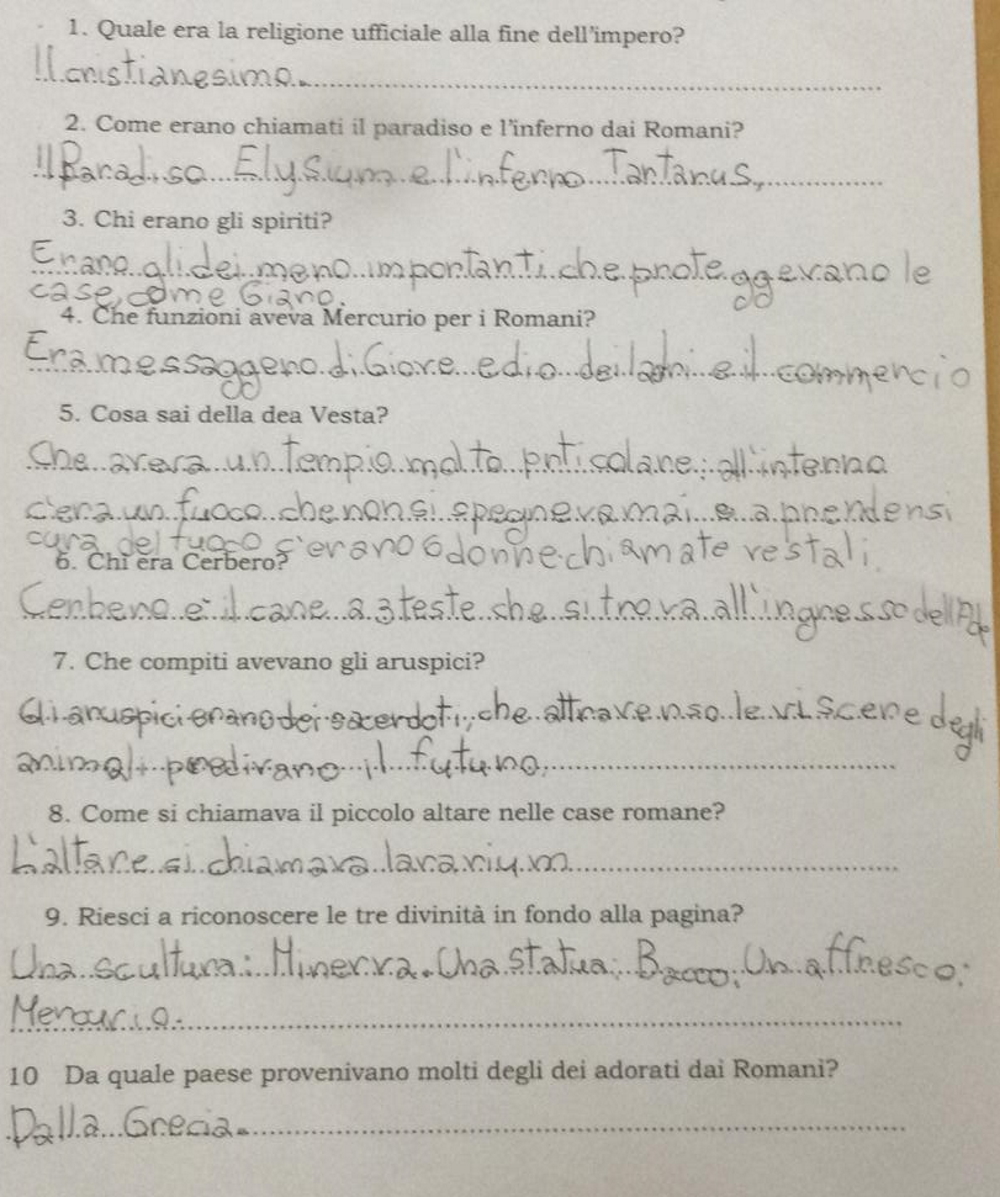 1. Quale era la religione ufficiale alla fine dell'impero?
Il cristianesimo.
2. Come erano chiamati il paradiso e l'inferno dai Romani?
Il Paradiso Elysium e l'inferno Tartarus,
3. Chi erano gli spiriti?
Erano gli dei meno importanti che proteggevano le
case, come Giano.
4. Che funzioni aveva Mercurio per i Romani?
Era messaggero di Giove e dio dei ladri e il commercio
5. Cosa sai della dea Vesta?
Che aveva un tempio molto prticolare: all'interno
c'era un fuoco che non si spegneva mai e a prendersi
cura del fuoco c'erano 6 donne chiamate vestali.
6. Chi era Cerbero?
Cerbero è il cane a 3 teste che si trova all'ingresso dell'Ade
7. Che compiti avevano gli aruspici?
Gli aruspici erano dei sacerdoti, che attraverso le viscere degli
animali predivano il futuro.
8. Come si chiamava il piccolo altare nelle case romane?
L'altare si chiamava lararium
9. Riesci a riconoscere le tre divinità in fondo alla pagina?
Una scultura: Minerva. Una statua: Bacco; Un affresco:
Mercurio.
10 Da quale paese provenivano molti degli dei adorati dai Romani?
Dalla Grecia.